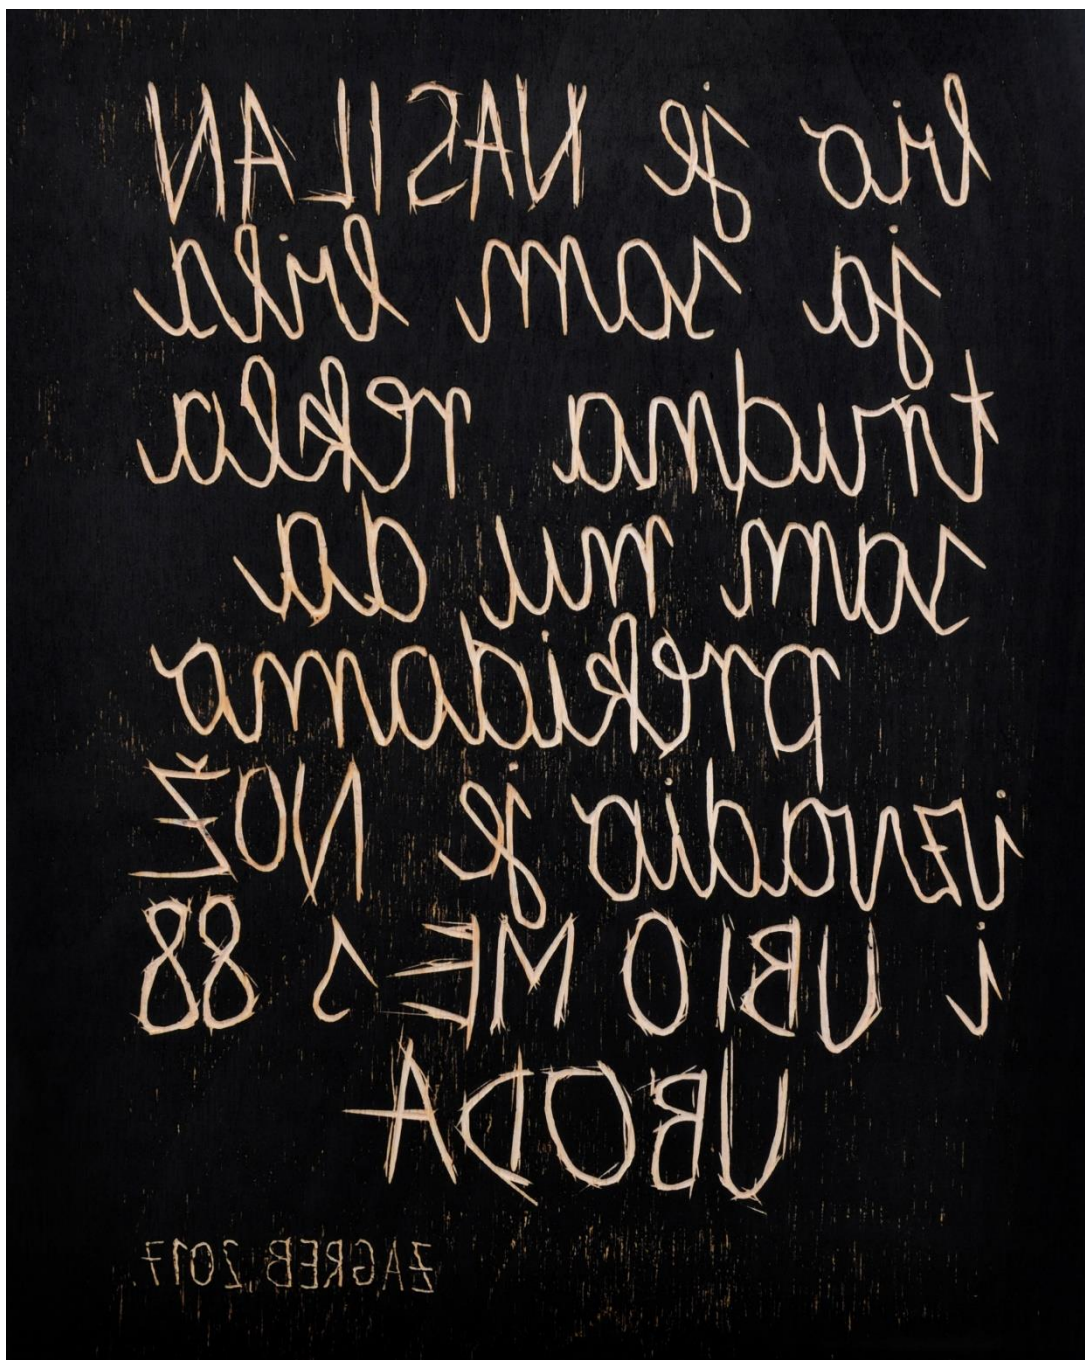 bio je NASILAN
ja sam bila
trudna rekla
sam mu da
prekidamo
izvadio je NOŽ
i UBIO ME s 88
UBODA
ZAGREB 2017.